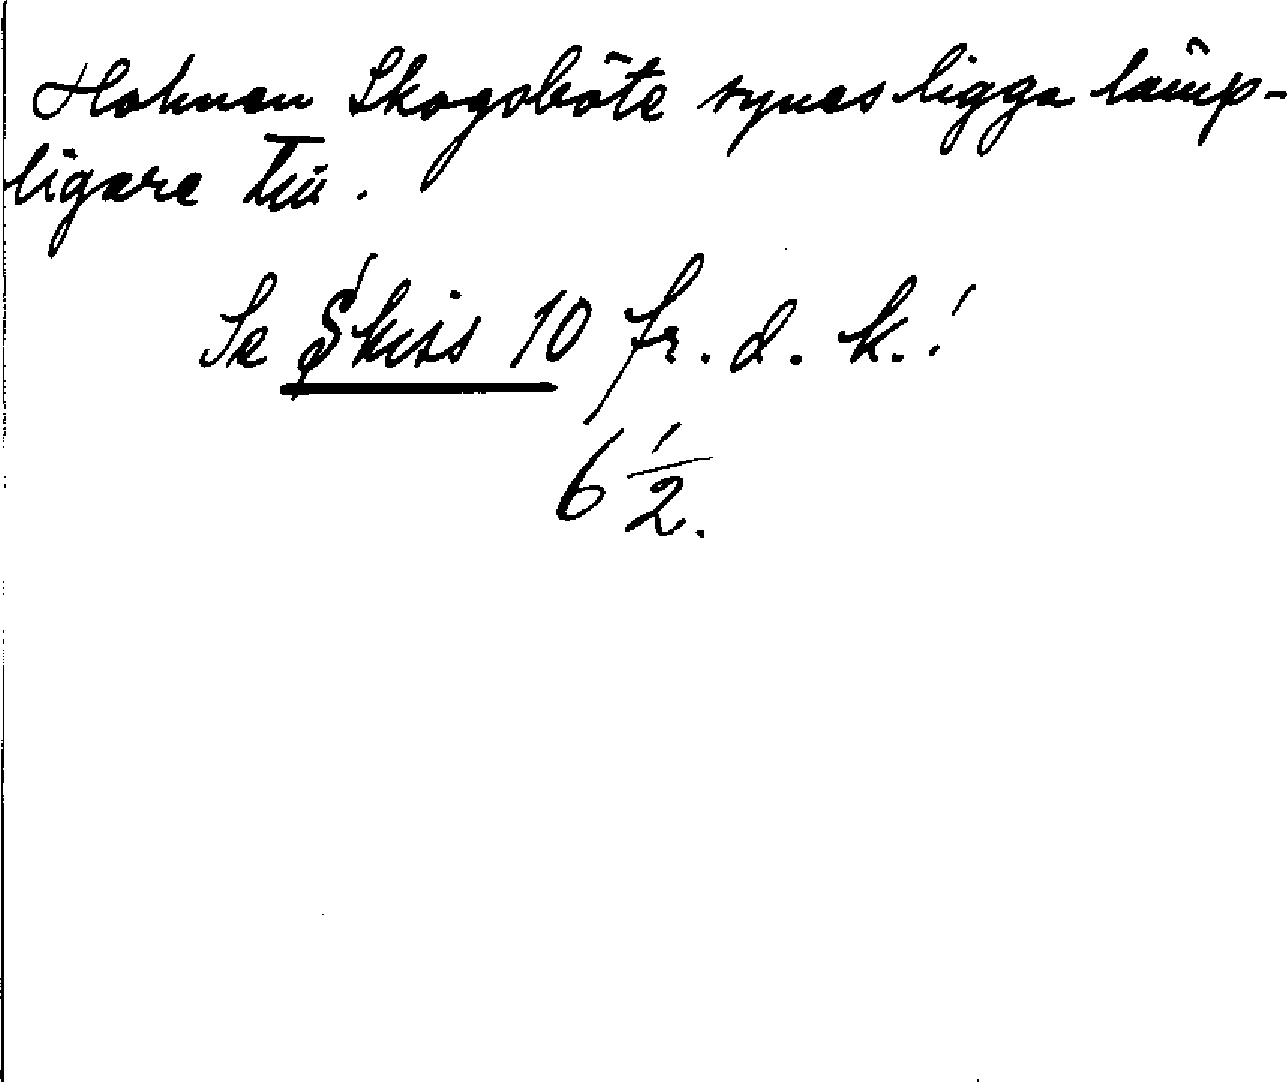 Holmen Skogsböte synes ligga lämp-
ligare till.
Se Skiss 10 fr. d. k.!
6 1/2.